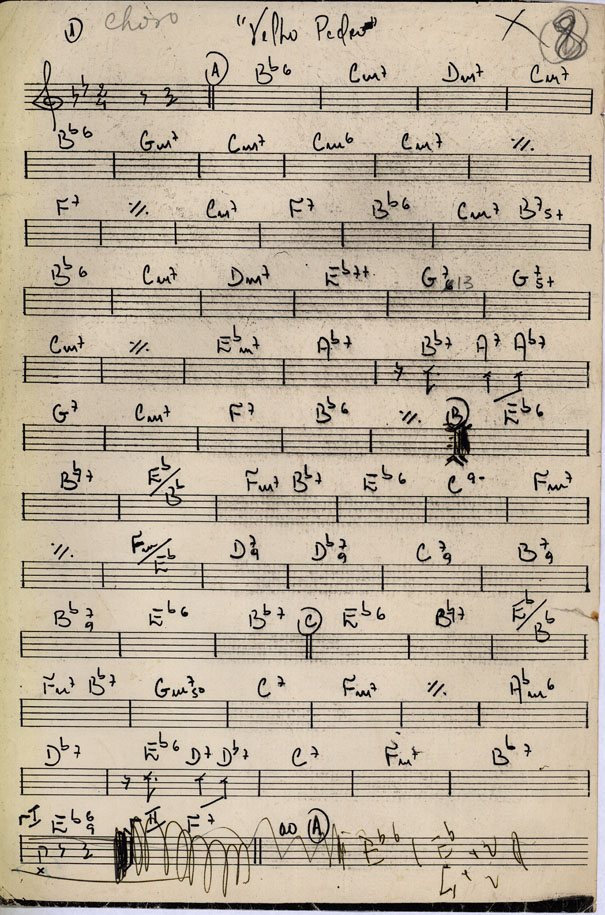 ① choro "Velho Pedro" X 8
2/4 A B♭6 Cm7 Dm7 Cm7
B♭6 Gm7 Cm7 Cm6 Cm7 ·//.
F7 ·//. Cm7 F7 B♭6 Cm7 B7 5+
B♭6 Cm7 Dm7 E♭7+ G7 13 G7 5+
Cm7 ·//. E♭m7 A♭7 B♭7 A7 A♭7
G7 Cm7 F7 B♭6 ·//. B E♭6
B♭7 E♭/B♭ Fm7 B♭7 E♭6 C9- Fm7
·//. Fm/E♭ D7 9 D♭7 9 C7 9 B7 9
B♭7 9 E♭6 B♭7 C E♭6 B♭7 E♭/B♭
Fm7 B♭7 Gm7 5o C7 Fm7 ·//. A♭m6
D♭7 E♭6 D7 D♭7 C7 Fm7 B♭7
I E♭6 9 II F7 ao A E♭6